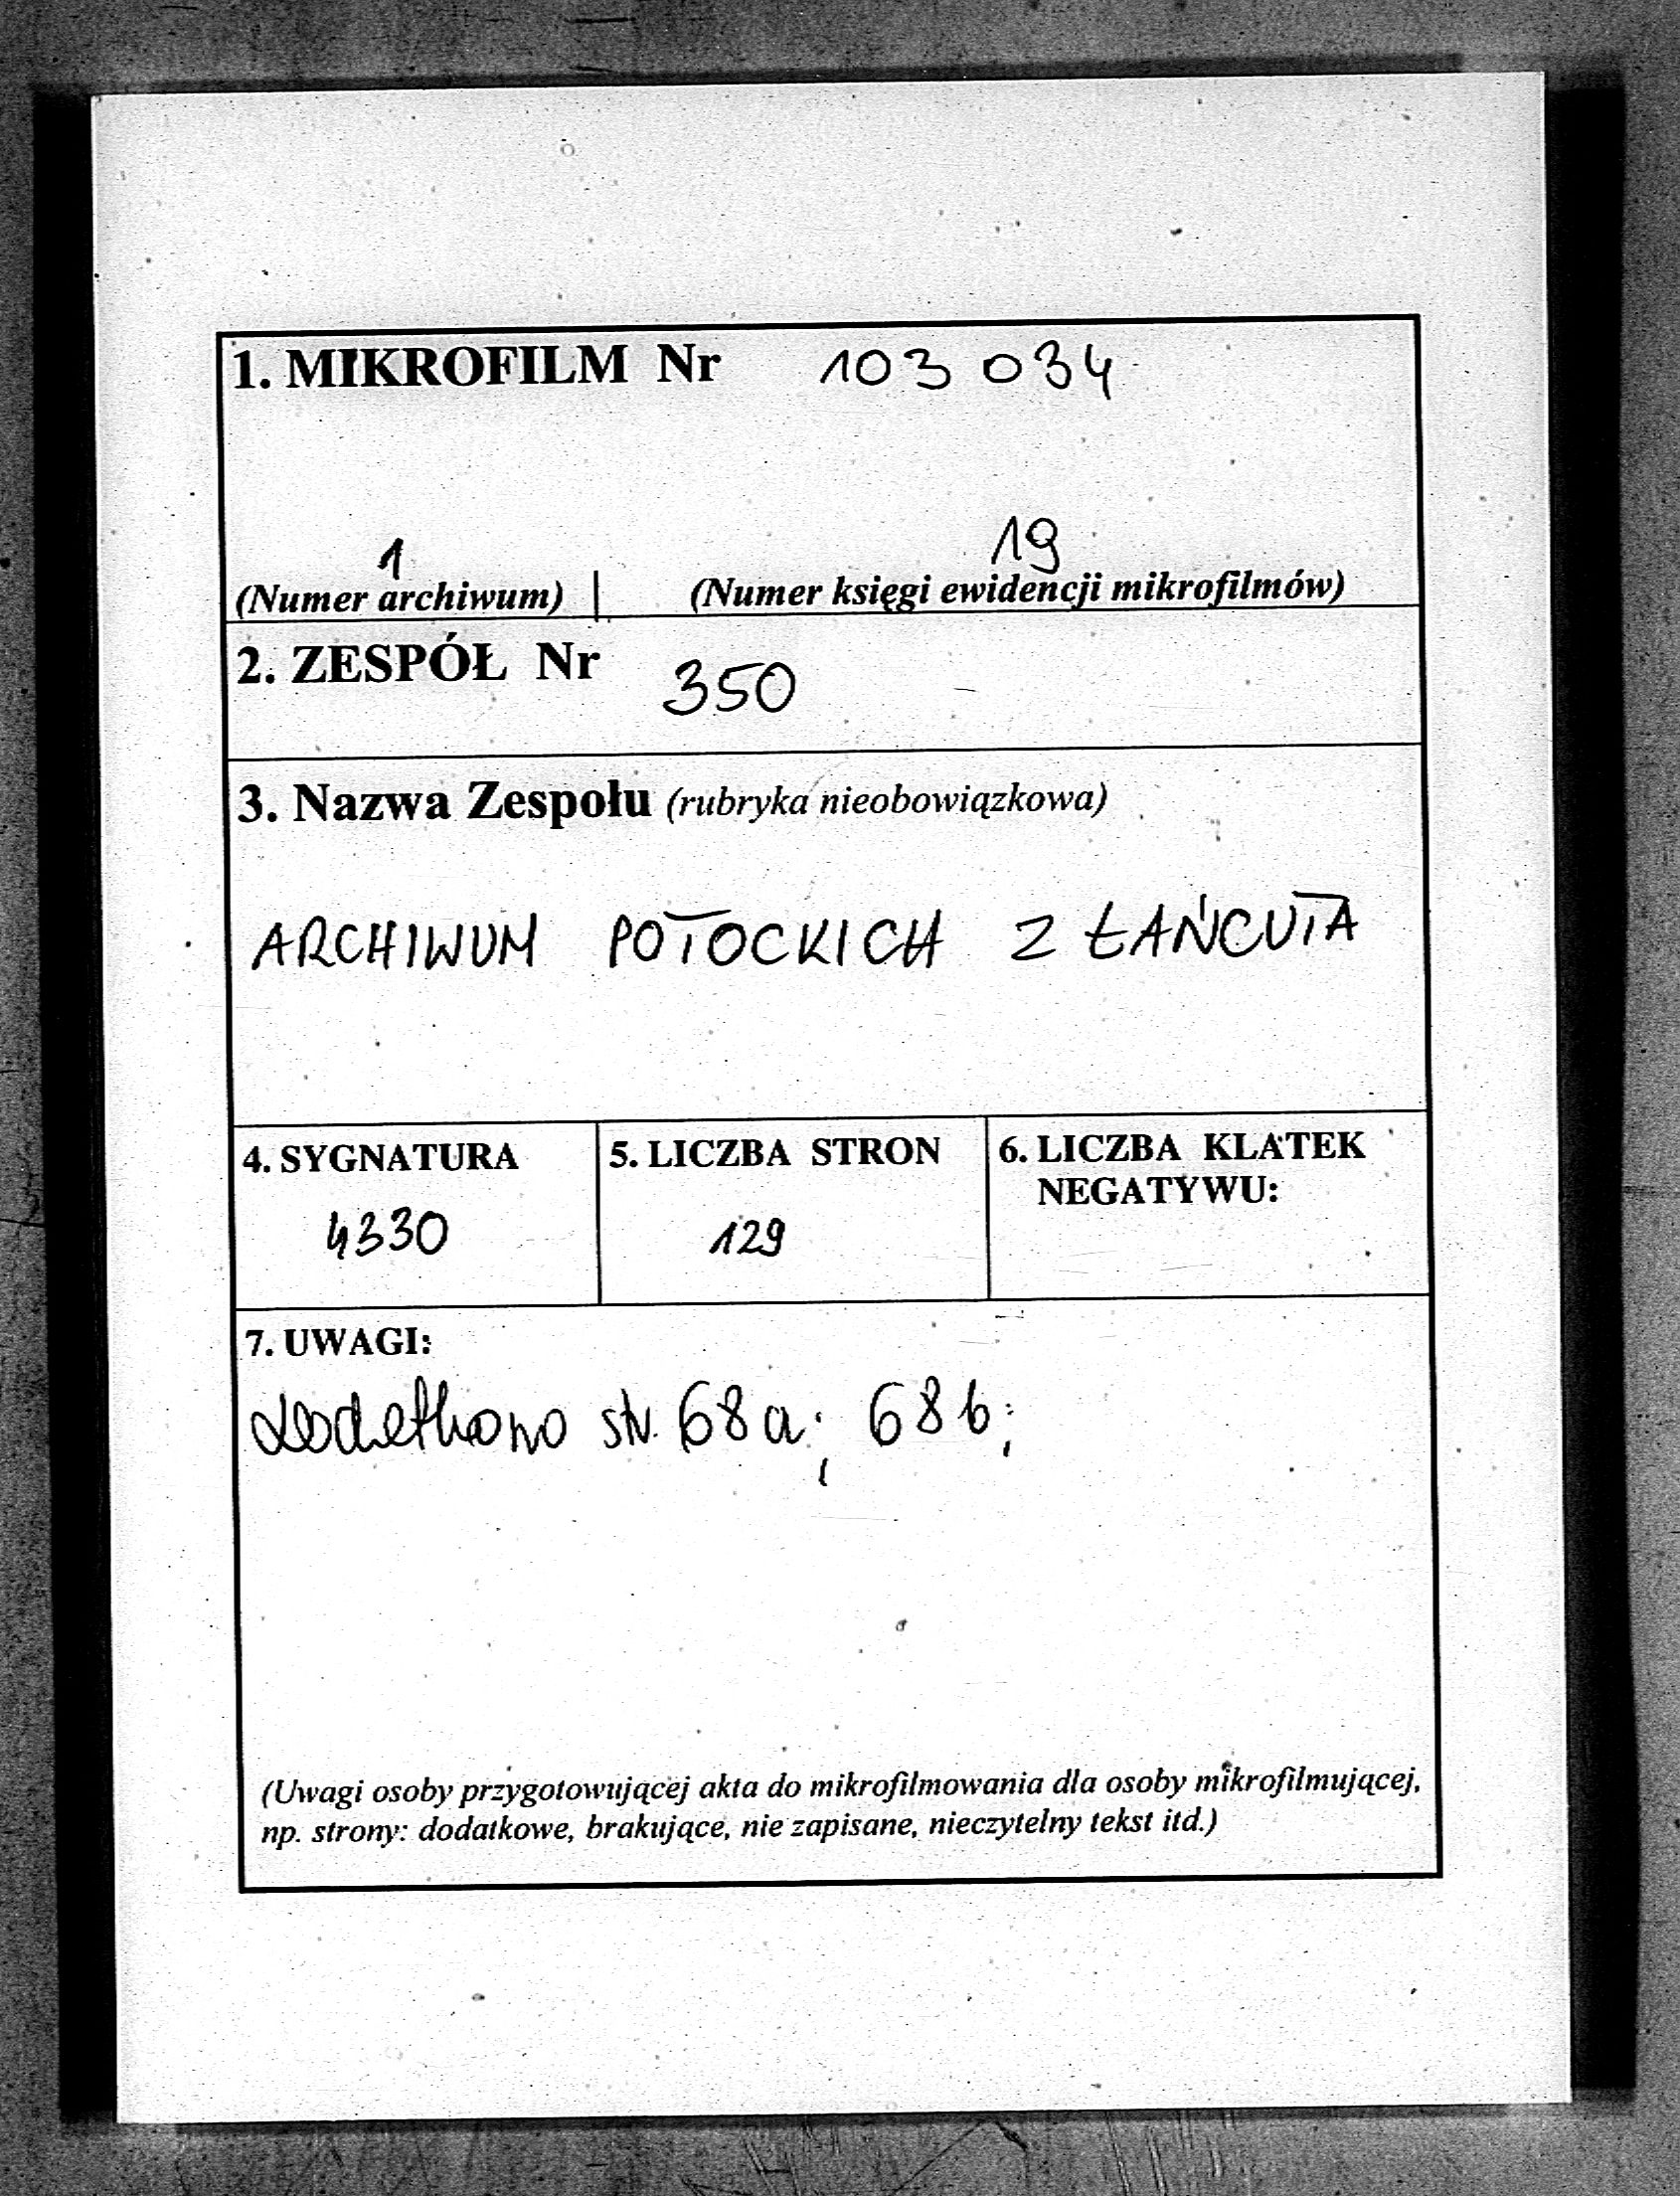 1. MIKROFILM Nr 103 034
1 19
(Numer archiwum) | (Numer księgi ewidencji mikrofilmów)
2. ZESPÓŁ Nr 350
3. Nazwa Zespołu (rubryka nieobowiązkowa)
ARCHIWUM POTOCKICH Z ŁAŃCUTA
4. SYGNATURA 5. LICZBA STRON 6. LICZBA KLATEK
NEGATYWU:
4330 129
7. UWAGI:
dodatkowo str. 68a; 68b;
(Uwagi osoby przygotowującej akta do mikrofilmowania dla osoby mikrofilmującej,
np. strony: dodatkowe, brakujące, nie zapisane, nieczytelny tekst itd.)